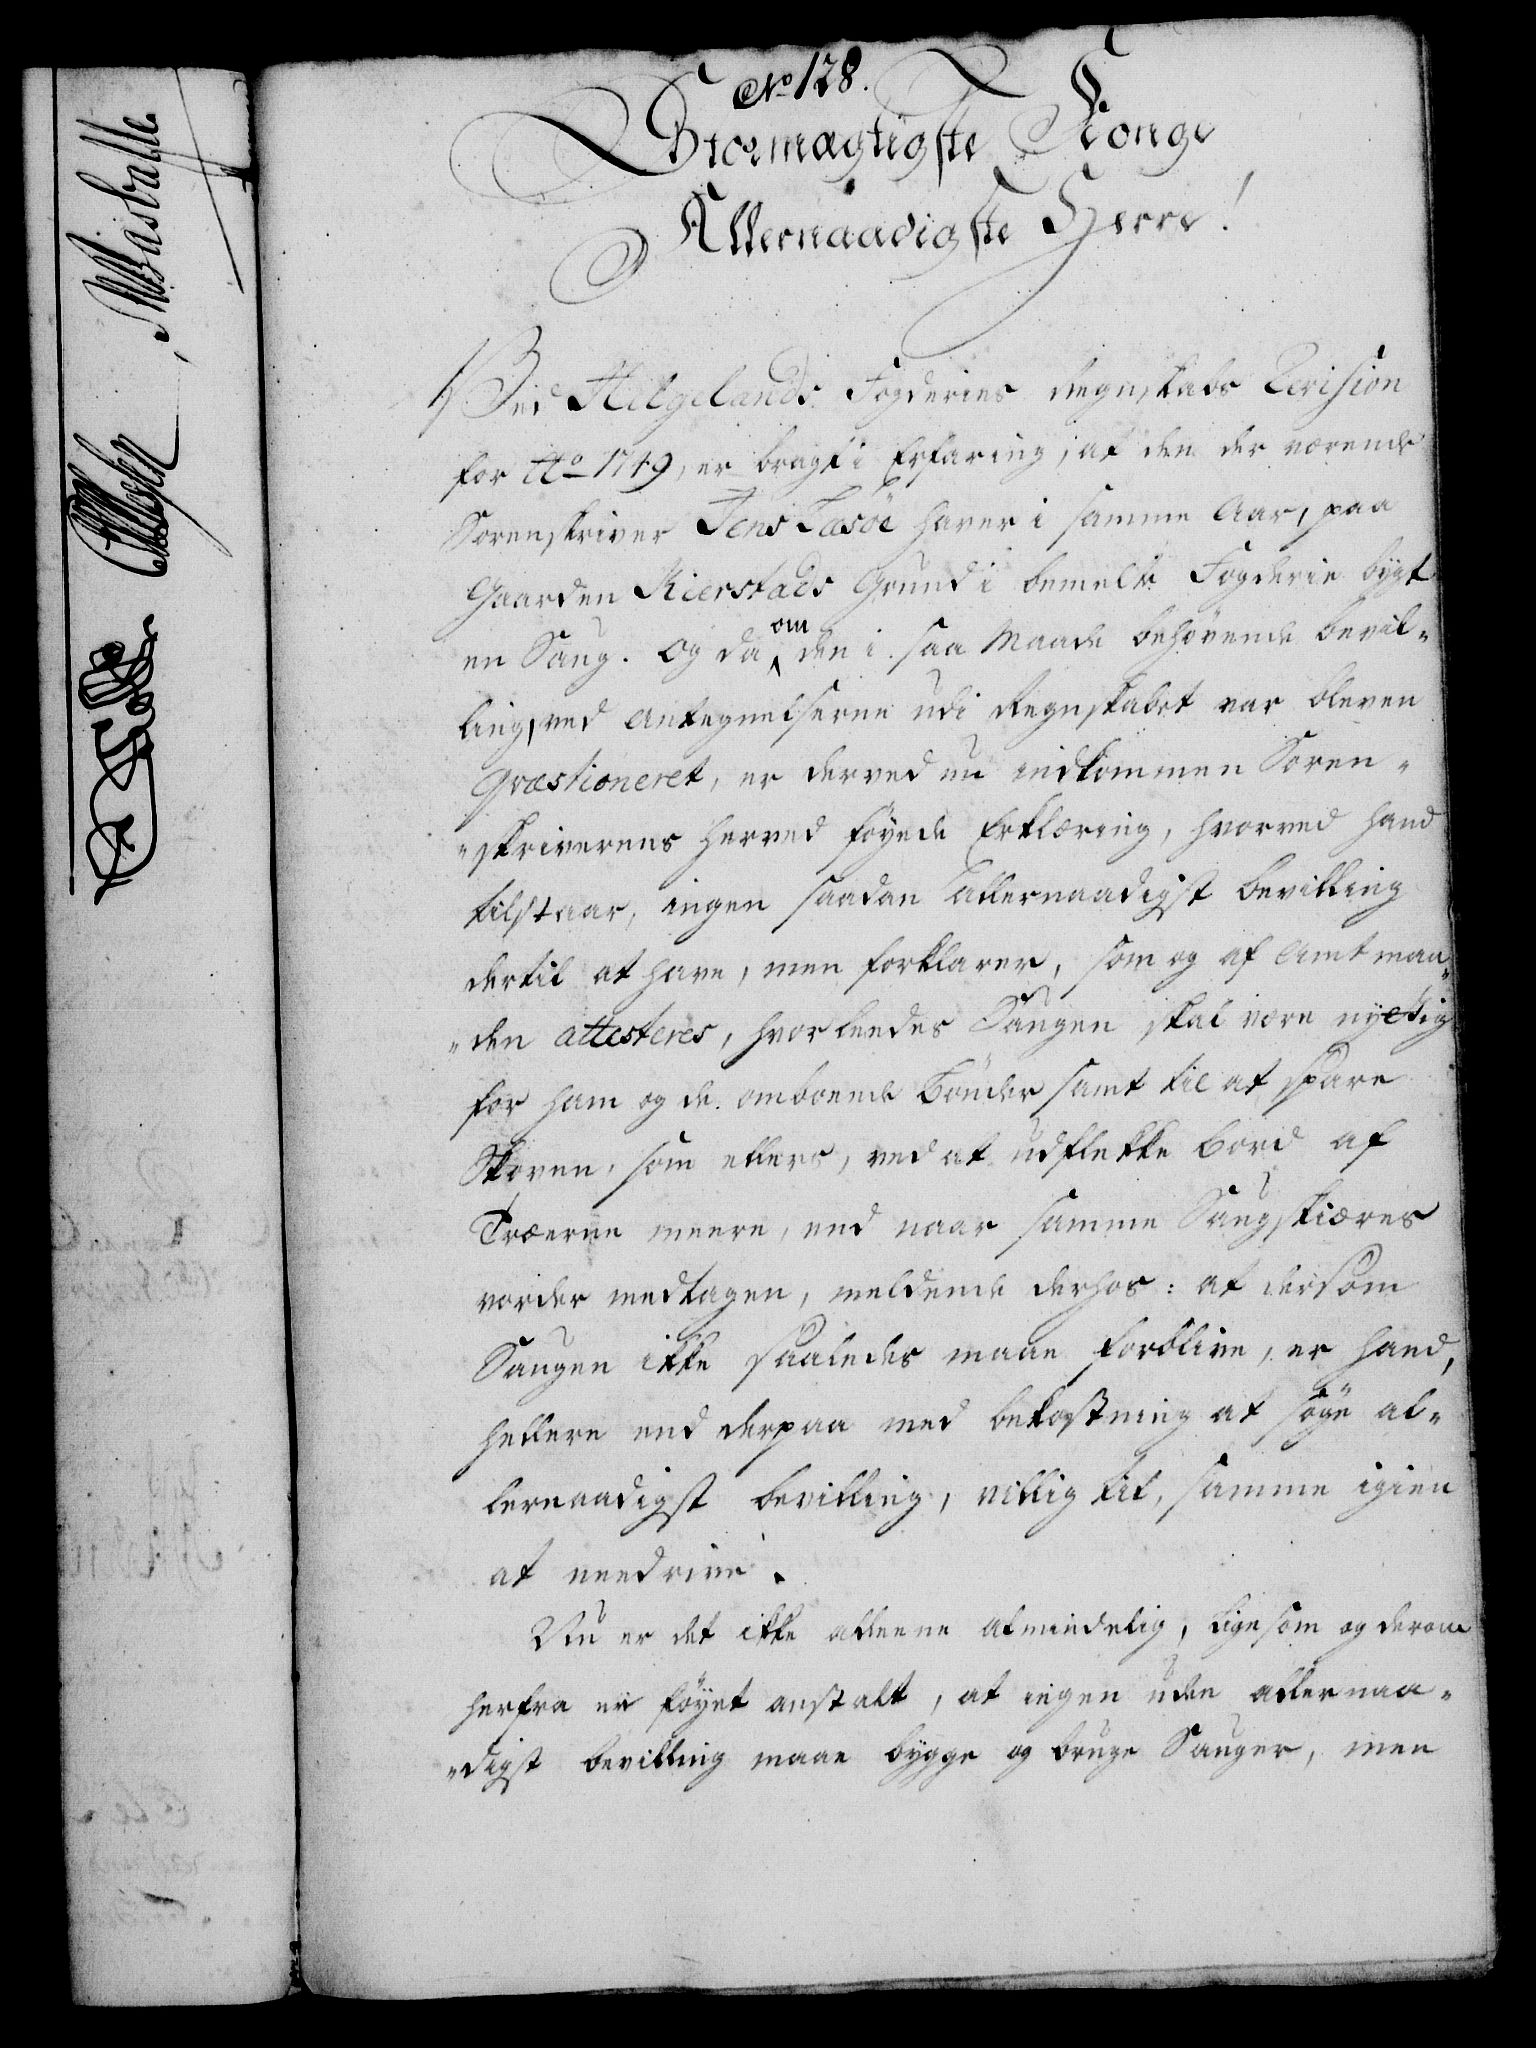 No 128.
Stormægtigste Konge
Allernaadigste Herre!
Ved Helgelands Fogderies Regnskabs Revision
for Ao 1749, er bragt i Erfaring, at den der værende
Sorenskriver Jens Læsöe haver i samme Aar, paa
Gaarden Kierstads Grund i bemelte Fogderie bygt
en Saug. Og da om den i saa Maade behövende bevil-
ling, ved Antegnelserne udi Regnskabet var bleven
qvæstioneret, er derved nu indkommen Soren-
"skriverens herved föyede Erklæring, hvorved hand
tilstaar, ingen saadan allernaadigst bevilling
dertil at have, men forklarer, som og af Amtman-
"den attesteres, hvorleedes Saugen skal være nyettig
for ham og de omboende Bönder samt til at spare
Skoven, som ellers, ved at udflekke Bord af
Træerne meere, end naar samme Saugskiæres
vorder medtagen, meldende derhos: at dersom
Saugen ikke saaledes maae forblive, er hand,
hellere end derpaa med bekostning at söge al-
lernaadigst bevilling, villig til, samme igien
at needrive.
Nu er det ikke alleene almindelig, ligesom og derom
herfra er föyet anstalt, at ingen uden allernaa-
"digst bevilling maae bygge og bruge Sauger, men